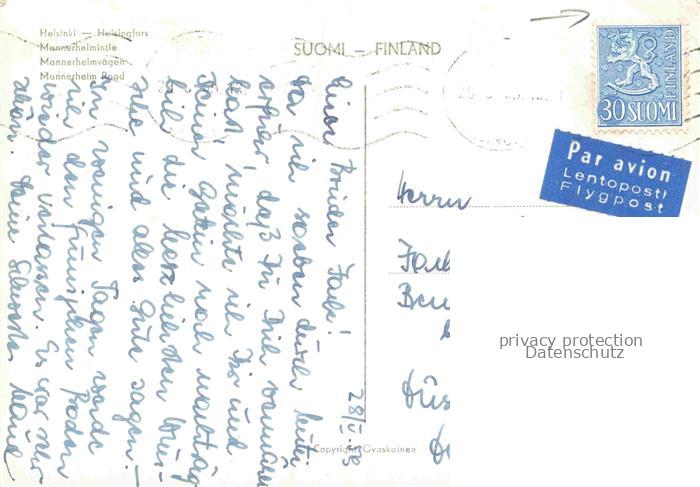 Helsinki — Helsingfors
Mannerheimintie
Mannerheimvägen
Mannerheim Road
SUOMI – FINLAND
30 SUOMI
FINLAND
Par avion
Lentoposti
Flygpost
28/V.
Lieber Bruder
da ich soeben durch
erfahre, daß Du Dich
hast, möchte ich Dir und
Deiner Gattin noch nachträg
lich die herzlichsten Wün-
sche und alles Gute sagen. –
In wenigen Tagen werde
ich den finnischen Boden
wieder verlassen. Es war sehr
schön. Deine Schwester
Herrn
Düs
Copyright: Ovaskainen
privacy protection
Datenschutz